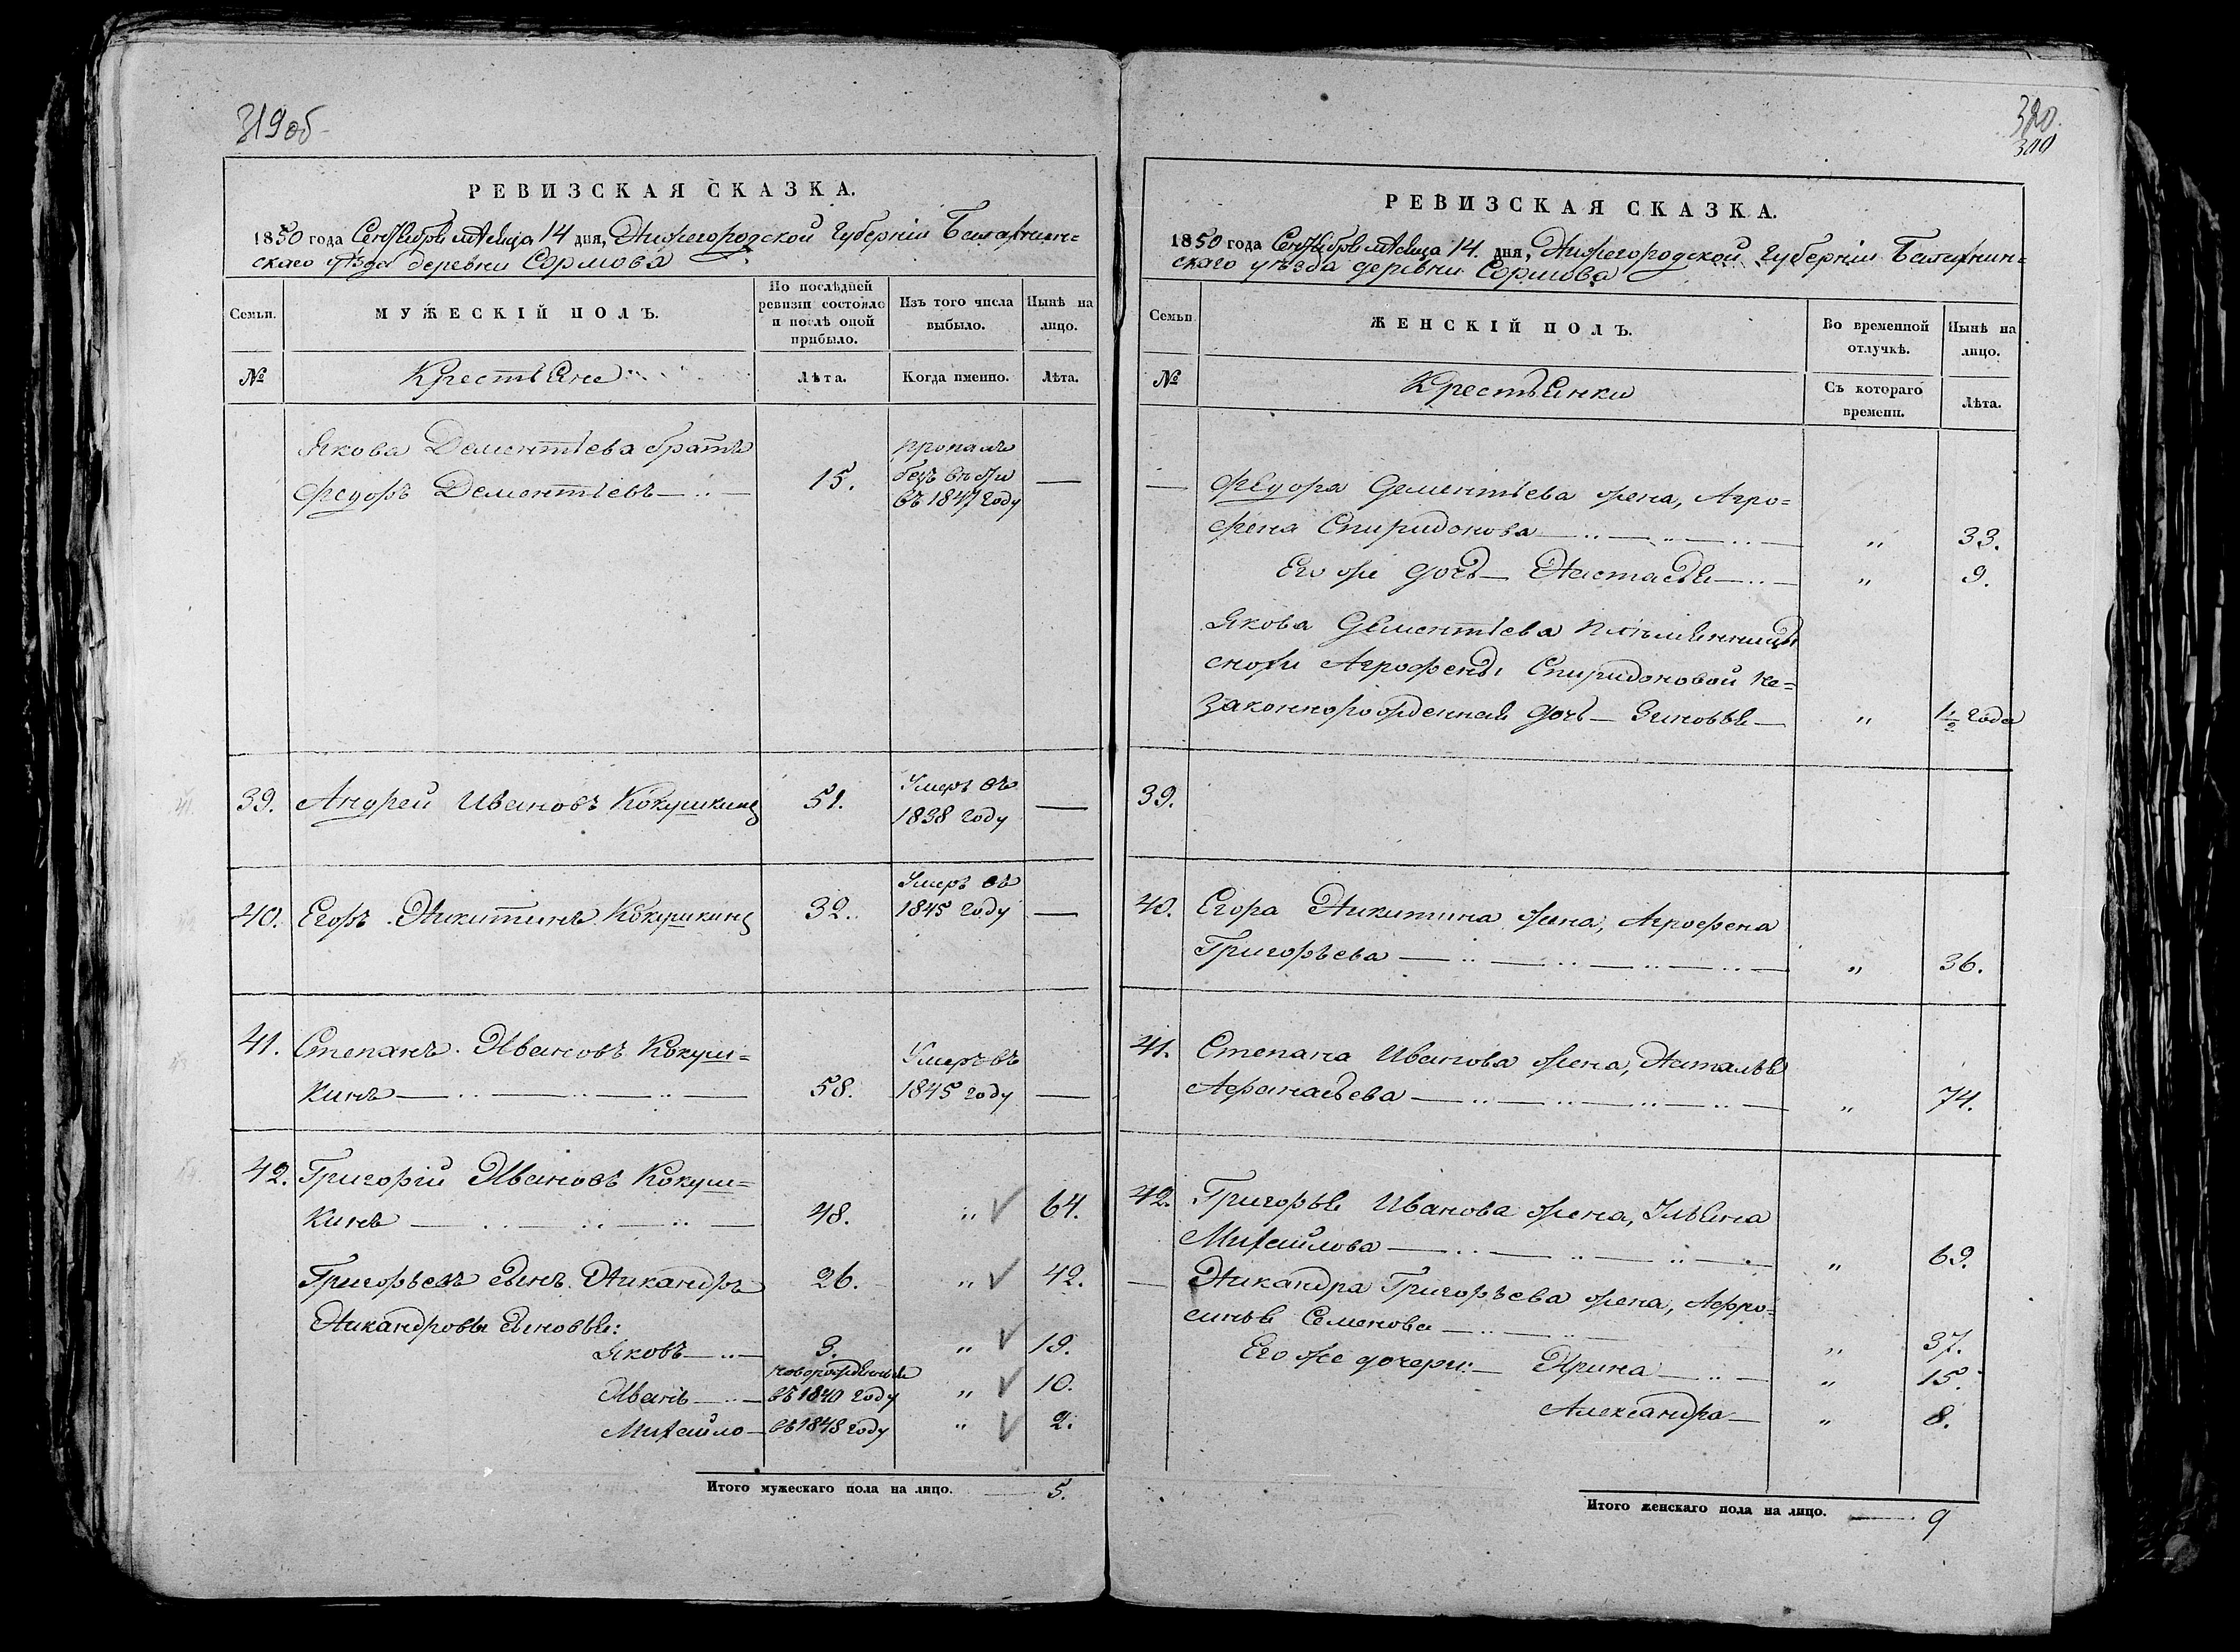 319 об
РЕВИЗСКАЯ СКАЗКА.
1850 года Сентября мѣсяца 14 дня, Нижегородской Губерніи Балахнин=
скаго уѣзда деревни Сормова
Семьи.
МУЖЕСКІЙ ПОЛЪ.
По послѣдней
ревизіи состояло
и послѣ оной
прибыло.
Изъ того числа
выбыло.
Нынѣ на
лицо.
№
Крестьяне
Лѣта.
Когда именно.
Лѣта.
Якова Дементьева братъ
Федоръ Дементьевъ
15.
пропалъ
безъ вѣсти
въ 1847 году
—
39.
Андрей Ивановъ Кокушкинъ
51.
Умеръ въ
1838 году
—
40.
Егоръ Никитинъ Кокушкинъ
32.
Умеръ въ
1845 году
—
41.
Степанъ Ивановъ Кокуш=
кинъ
58.
Умеръ въ
1845 году
—
42.
Григорій Ивановъ Кокуш=
кинъ
48.
„
64.
Григорьевъ сынъ Никандръ
26.
„
42.
Никандровы сыновья:
Яковъ
3.
„
19.
Иванъ
новорожденные
въ 1840 году
„
10.
Михайло
въ 1848 году
„
2.
Итого мужескаго пола на лицо.
5.
320.
300
РЕВИЗСКАЯ СКАЗКА.
1850 года Сентября мѣсяца 14. дня, Нижегородской Губерніи Балахнин=
скаго уѣзда деревни Сормова
Семьи
ЖЕНСКІЙ ПОЛЪ.
Во временной
отлучкѣ.
Нынѣ на
лицо.
№
Крестьянки
Съ котораго
времени.
Лѣта.
—
Федора Дементьева жена, Агро=
фена Спиридонова
„
33.
Его же дочь — Настасья
„
9.
Якова Дементьева племянницы
снохи Агрофены Спиридоновой не=
законнорожденная дочь — Зиновья
„
1½ года
39.
40.
Егора Никитина жена, Агрофена
Григорьева
„
36.
41.
Степана Иванова жена, Наталья
Афанасьева
„
74.
42.
Григорья Иванова жена, Ульяна
Михайлова
„
69.
—
Никандра Григорьева жена, Афро=
синья Семенова
„
37.
Его же дочери: — Ирина
„
15.
Александра
„
8.
Итого женскаго пола на лицо.
9